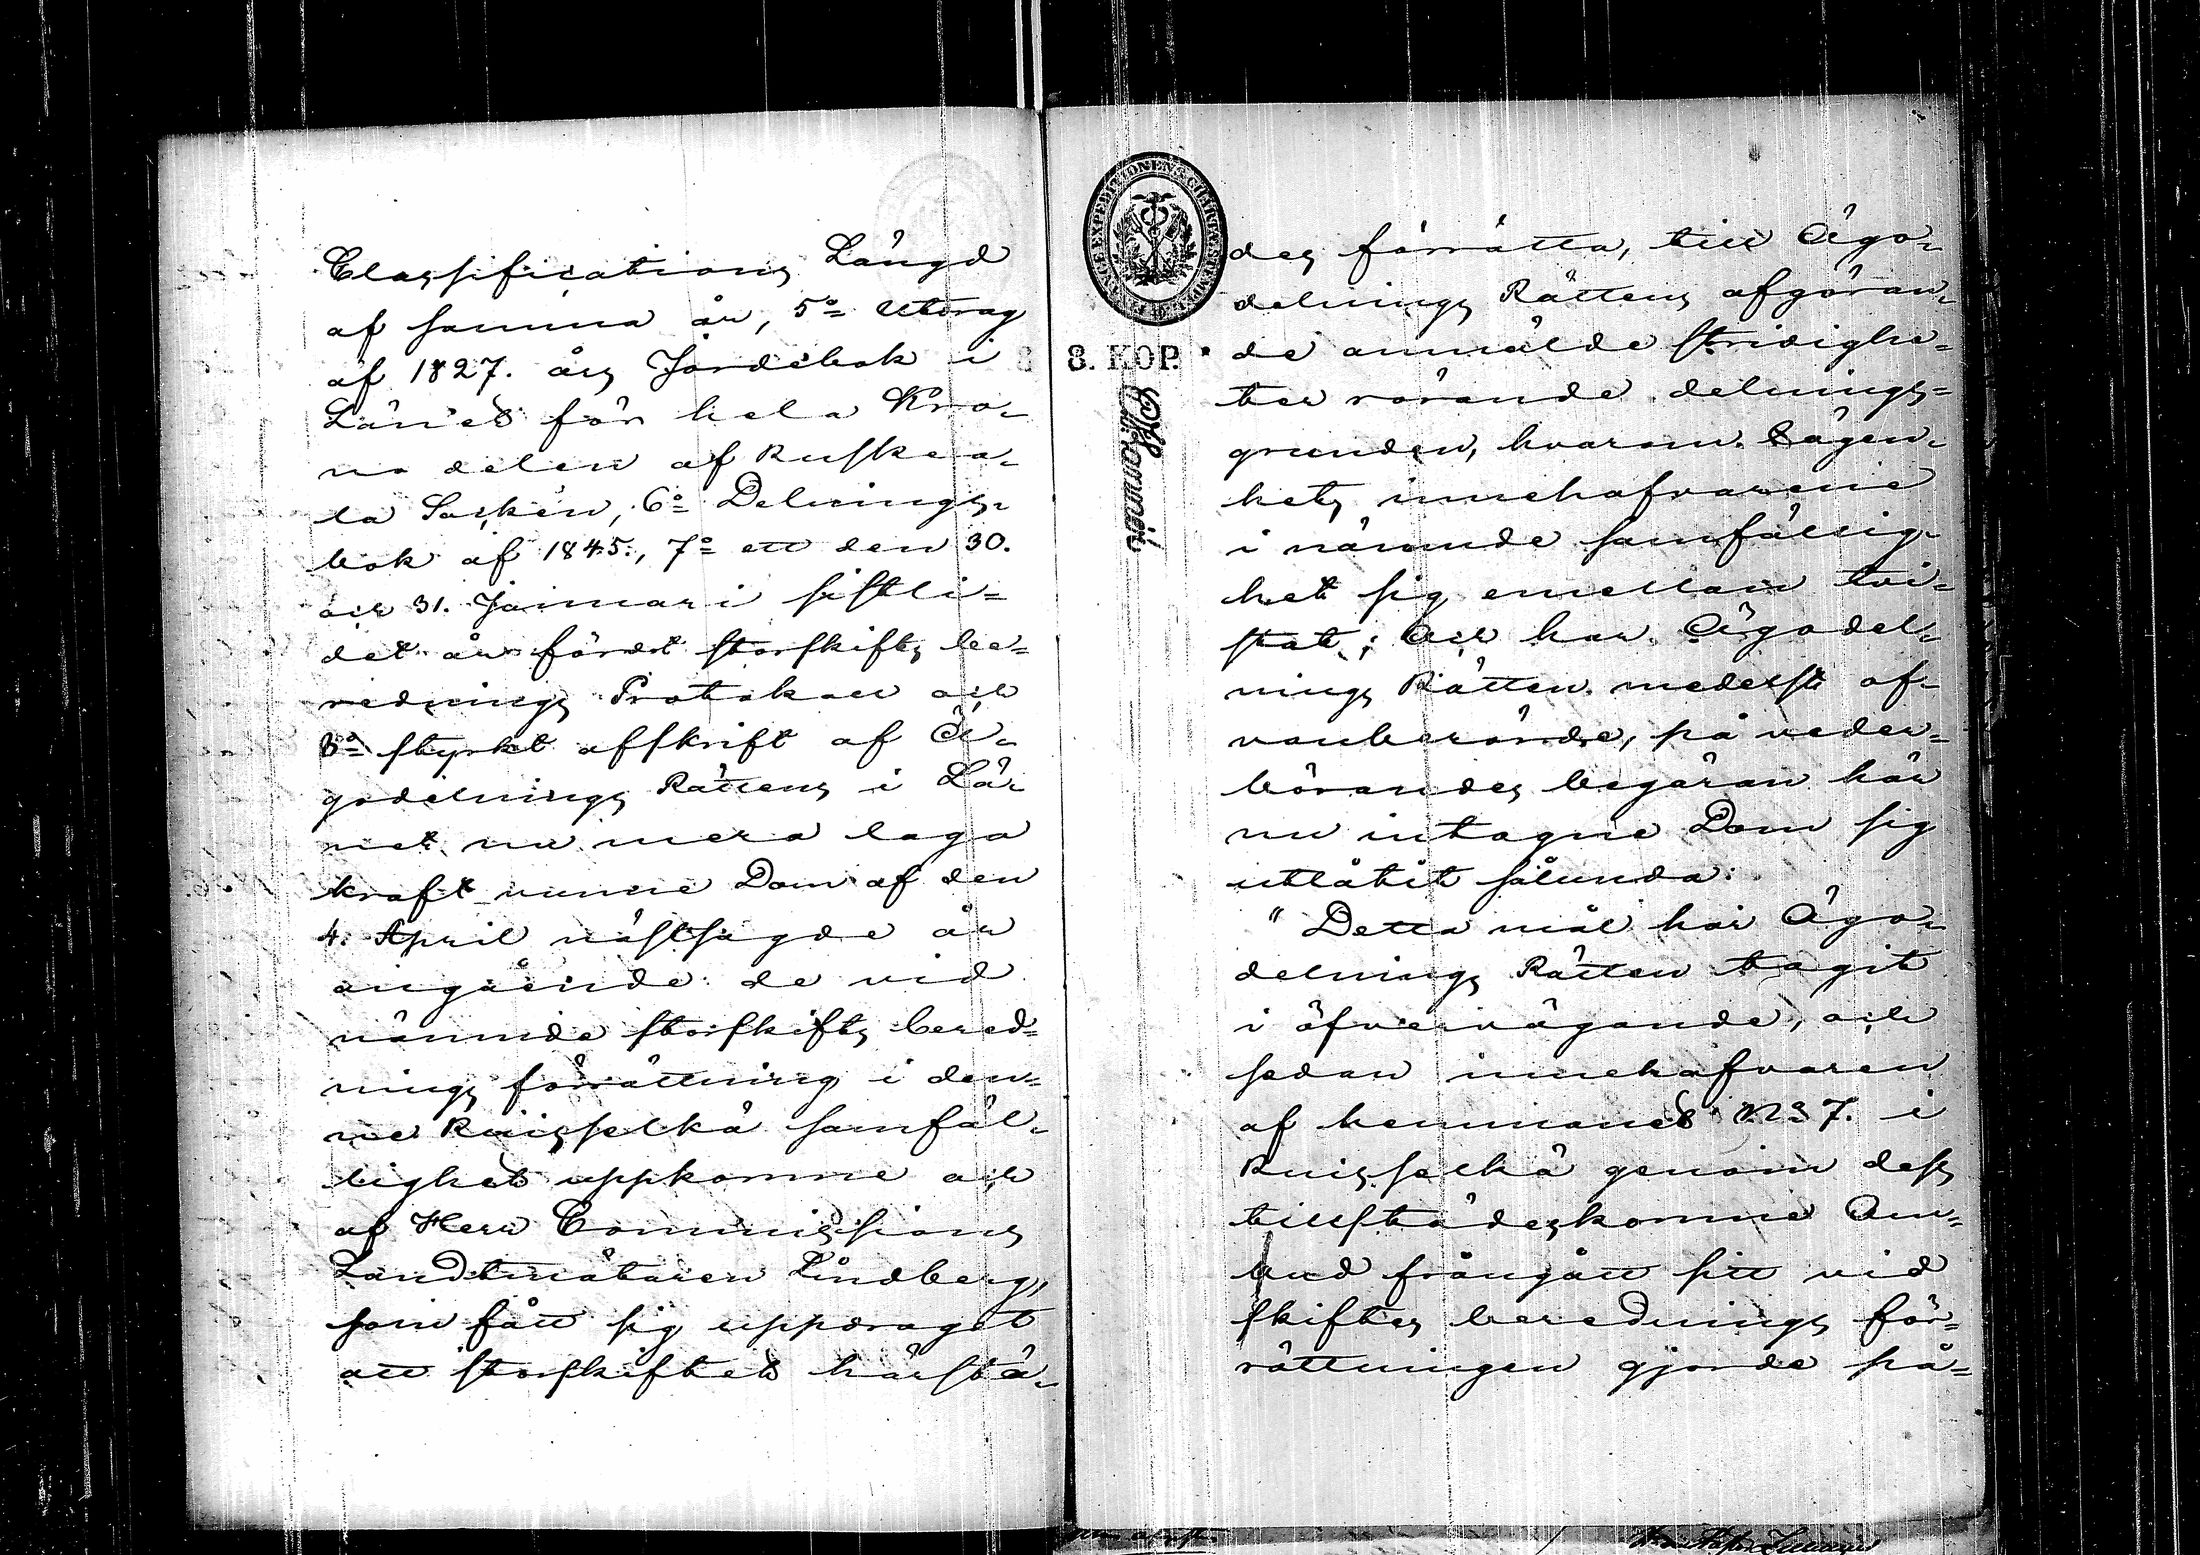 Classifications Längd
af samma år, 5:o Utdrag
af 1827. års Jordebok i
Länet för hela Kro-
no delen af Ruskea-
la Socken, 6:o Delnings-
bok af 1845., 7:o ett den 30.
och 31. Januari sistli=
det år fördt storskifts be=
rednings Protokoll och
8:o styrkt afskrift af Ä-
godelnings Rättens i Lä-
net nu mera laga
kraft vunne Dom af den
4. April nästsagde år
angående de vid
nämnde storskifts bered=
nings förrättning i den=
ne Ruisselkä samfäl-
lighet uppkomne och
af Herr Commissions
Landtmätaren Lindberg,
som fått sig uppdraget
att storskiftet härstä-
EXPEDITIONEN & CHARTÆ
8. KOP.
des förrätta, till Ägo-
delnings Rättens afgöran-
de anmälde stridighe=
ter rörande delnings=
grunden, hvarom Lägen-
hets innehafvarene
i nämnde samfällig-
het sig emellan tvi-
stat; Och har Ägodel-
nings Rätten medelst of-
vanberörde, på veder=
börandes begäran här
nu intagne Dom sig
utlåtit sålunda:
"Detta mål har Ägo-
delnings Rätten tagit
i öfvervägande, och
sedan innehafvaren
af hemmanet N:o 7. i
Ruisselkä genom dess
tillstädeskomne Om=
bud frångått sitt vid
skiftes berednings för=
rättningen gjorde på=